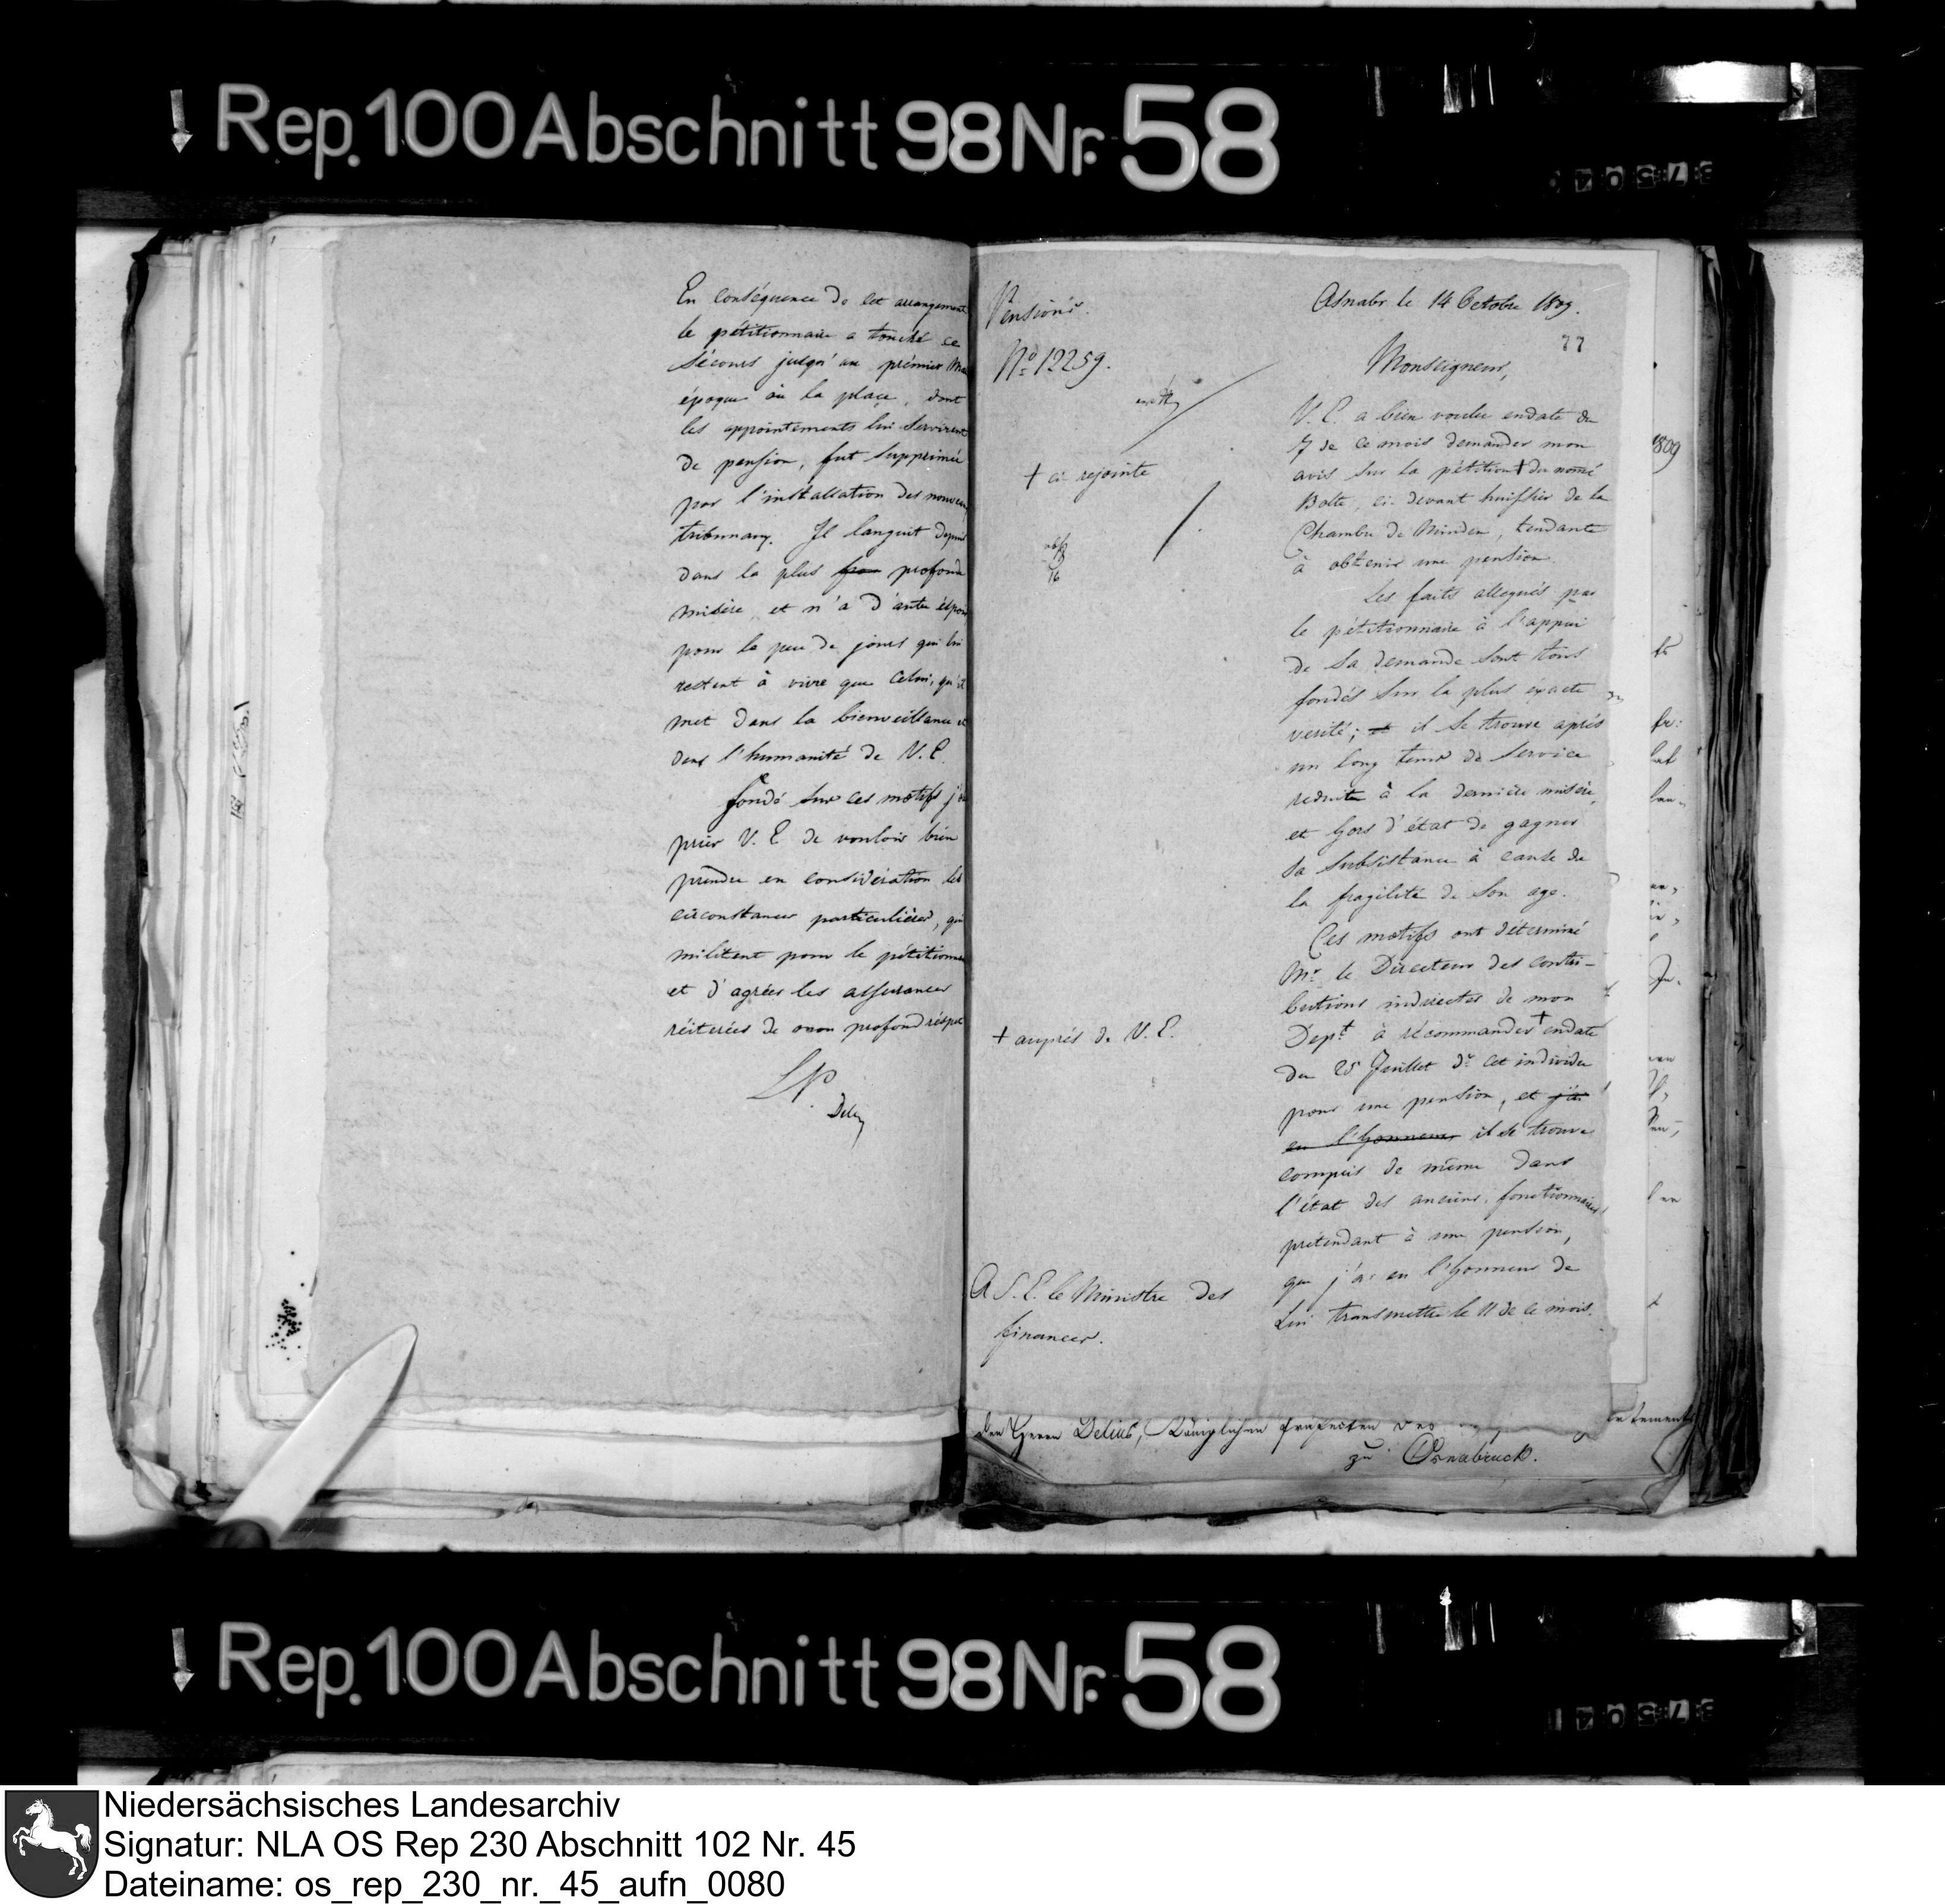 Rep. 100 Abschnitt 98 Nr. 58
En conséquence de cet arrangement
le pétitionnaire a touché ce
sécours jusqu'au prémier
époque où la place, dont
les appointements lui servirent
de pension, fut supprimée
par l'installation des nouveau
tribunaux. Il languit depuis
dans la plus profonde
misère, et n'a d'autre éspoir
pour le peu de jours qui lui
restent à vivre que celui, qu'il
met dans la bienveillance et
dans l'humanité de V. E.
fondé sur ces motifs j'
prier V. E. de vouloir bien
prendre en considération les
circonstances particulières, qui
militent pour le pétitionnaire
et d'agréer les assurances
réiterées de mon profond réspect
L P.
Pensions.
No. 12259.
+ ci rejointe
+ auprés de V. E.
A S. E. le Ministre des
finances.
Osnabr. le 14 Octobre 1809.
77
Monseigneur,
V. E. a bien voulu endate du
7 de ce mois demander mon
avis sur la pétition + du nomé
Bolte, ci-devant huissier de la
Chambre de Minden, tendante
à obtenir une pension.
Les faits allegués par
le pétitionnaire à l'appui
de sa demande sont tous
fondés sur la plus éxacte
verité; et il se trouve après
un long tems de service
reduite à la dernière misère,
et hors d'état de gagner
sa subsistance à cause de
la fragilité de son age.
Ces motifs ont déterminé
Mr. le Directeur des contri-
butions indirectes de mon
Dept. à récommander + endate
du 25 Juillet dr. cet individu
pour une pension, et j'ai
eu l'honneur il se trouve
compris de même dans
l'état des anciens fonctionnaires
prétendant à une pension,
que j'ai eu l'honneur de
Lui transmettre le 11 de ce mois.
1809
den Herrn Delius, Königlichen Praefecten des
zu Osnabruck.
Rep. 100 Abschnitt 98 Nr. 58
Niedersächsisches Landesarchiv
Signatur: NLA OS Rep 230 Abschnitt 102 Nr. 45
Dateiname: os_rep_230_nr._45_aufn_0080